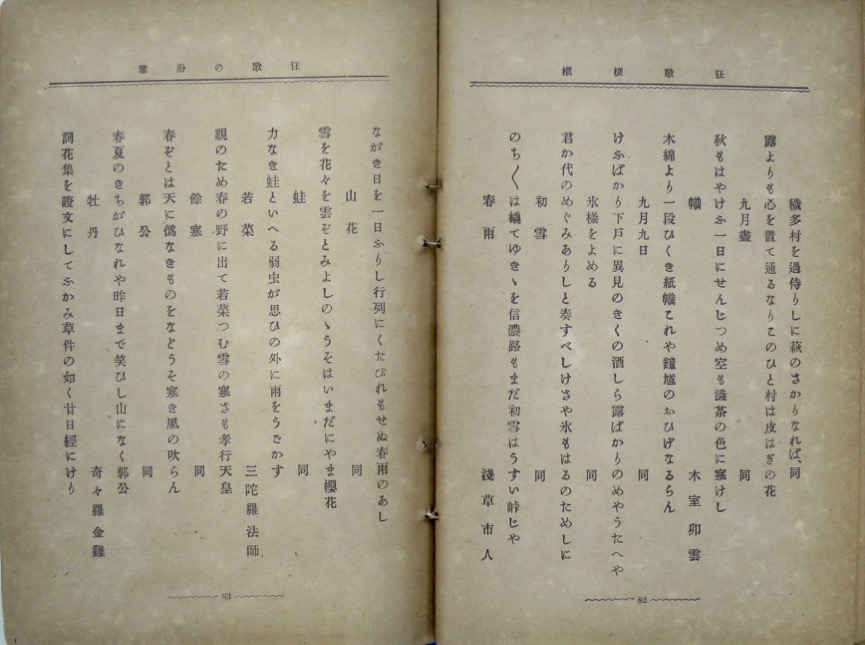 狂歌梗概
穢多村を過侍りしに萩のさかりなれば、同
露よりも心を置て通るなりこのひと村は皮はぎの花
九月盡 同
秋もはやけふ一日にせんじつめ空も澁茶の色に寒けし
幟 木室卯雲
木綿より一段ひくき紙幟これや鐘馗のおひげなるらん
九月九日 同
けふばかり下戸に異見のきくの酒しら露ばかりのめやうたへや
氷様をよめる 同
君か代のめぐみありしと奏すべしけさや氷もはるのためしに
初雪 同
のち〱は橇てゆきゝを信濃路もまだ初雪はうすい峠じや
春雨 淺草市人
82
狂歌の沿革
ながき日を一日ふりし行列にくたびれもせぬ春雨のあし
山花 同
雪を花々を雲ぞとみよしのゝうそはいまだにやま櫻花
蛙 同
力なき蛙といへる弱虫が思ひの外に雨をうでかす
若菜 三陀羅法師
親のため春の野に出て若菜つむ雪の寒さも孝行天皇
餘寒 同
春ぞとは天に僞なきものをなどうそ寒き風の吹らん
郭公 同
春夏のきちがひなれや昨日まで笑ひし山になく郭公
牡丹 奇々羅金雞
詞花集を證文にしてふかみ草件の如く廿日經にけり
83